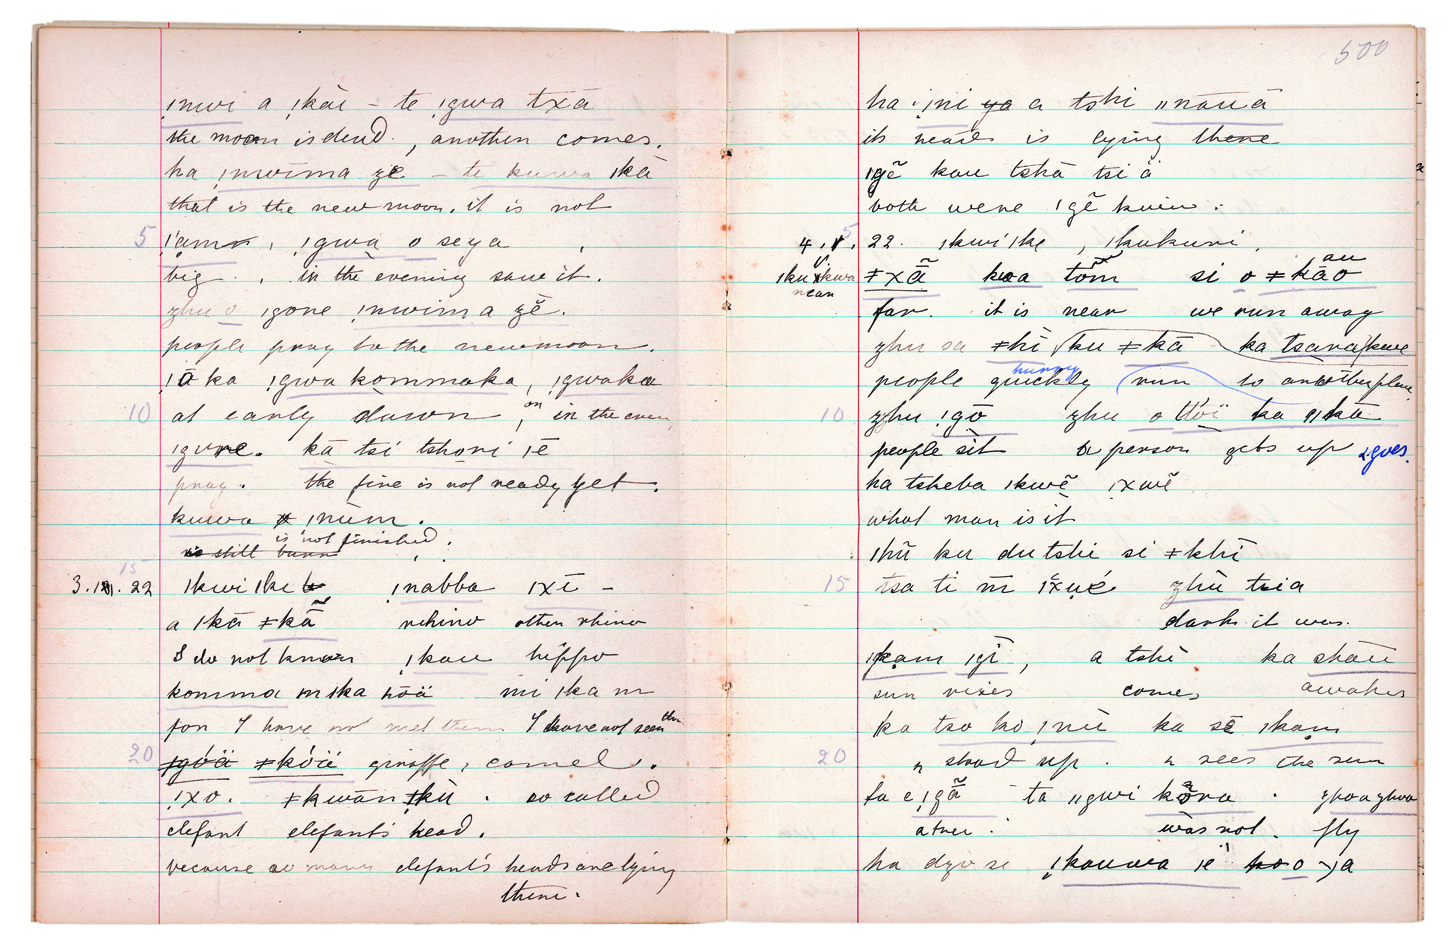 ǃnwi a ǀkāi – te ǃgwa txā
the moon is dead, another comes.
ha ǃnwima zĕ – te kuwa ǀkā
that is the new moon. it is not
5
ǃgwa o seya
big. in the evening saw it.
zhu o ǀgore ǃnwima zĕ.
people pray to the newmoon.
ǀā ka ǃgwa kommaka, ǃgwaka
10 at early dawn, on in the even
ǀgure. kā tsi tshori ǀē
pray. the fire is not ready yet.
kuwa ǃnum.
is not finished.
is still burn
15
3. 22 ǀkwi ǀke ǃnabba ǀxī –
a ǀkā ǂkā̃ rhino other rhino
I do not know ǀkau hippo
komma m ǀka mi ǀka m
for I have not met them I have not seen them
20 ǂgóä ǂkóä giraffe, camel.
ǀxo. ǂkwān ǂkù. so called
elefant elefant's head.
because so many elefant's heads are lying
there.
500
ha ǃni ya a tshi ǁnāuā
its heads is lying there
ǀgē̃ kau tshā tsi ä
both were ǀgē̃ kwin:
5
4. 22. ǀkwi ǀke, ǀkukuri.
ǀku ǀkwa ǂxā̃ kaa tom̃ si o ǂkāo au
near
far. it is near we run away
zhu sa ǂhi ǀku ǂkā ka tsara ǀkwe
hurry
people quickly run to another place
10 zhu ǃgō zhu o ka ǁkā
people sit a person gets up & goes.
ha tsheba ǀkwē ǀxwē
what man is it
ǀhū ku du tshi si ǂkhī
15 tsa ti m̄ zhù tsia
dark it was.
ǀkam ǀgī, a tshi ka shāu
sun rises comes awakes
ka tso ko ǃnū ka sē ǀkam
20 stood up. sees the sun
ta e ǃgā̃ ta ǁgwi kōra. zhoa zhwa
after. was not. fly
ha dzo se ǃkauwa ie koo o ya